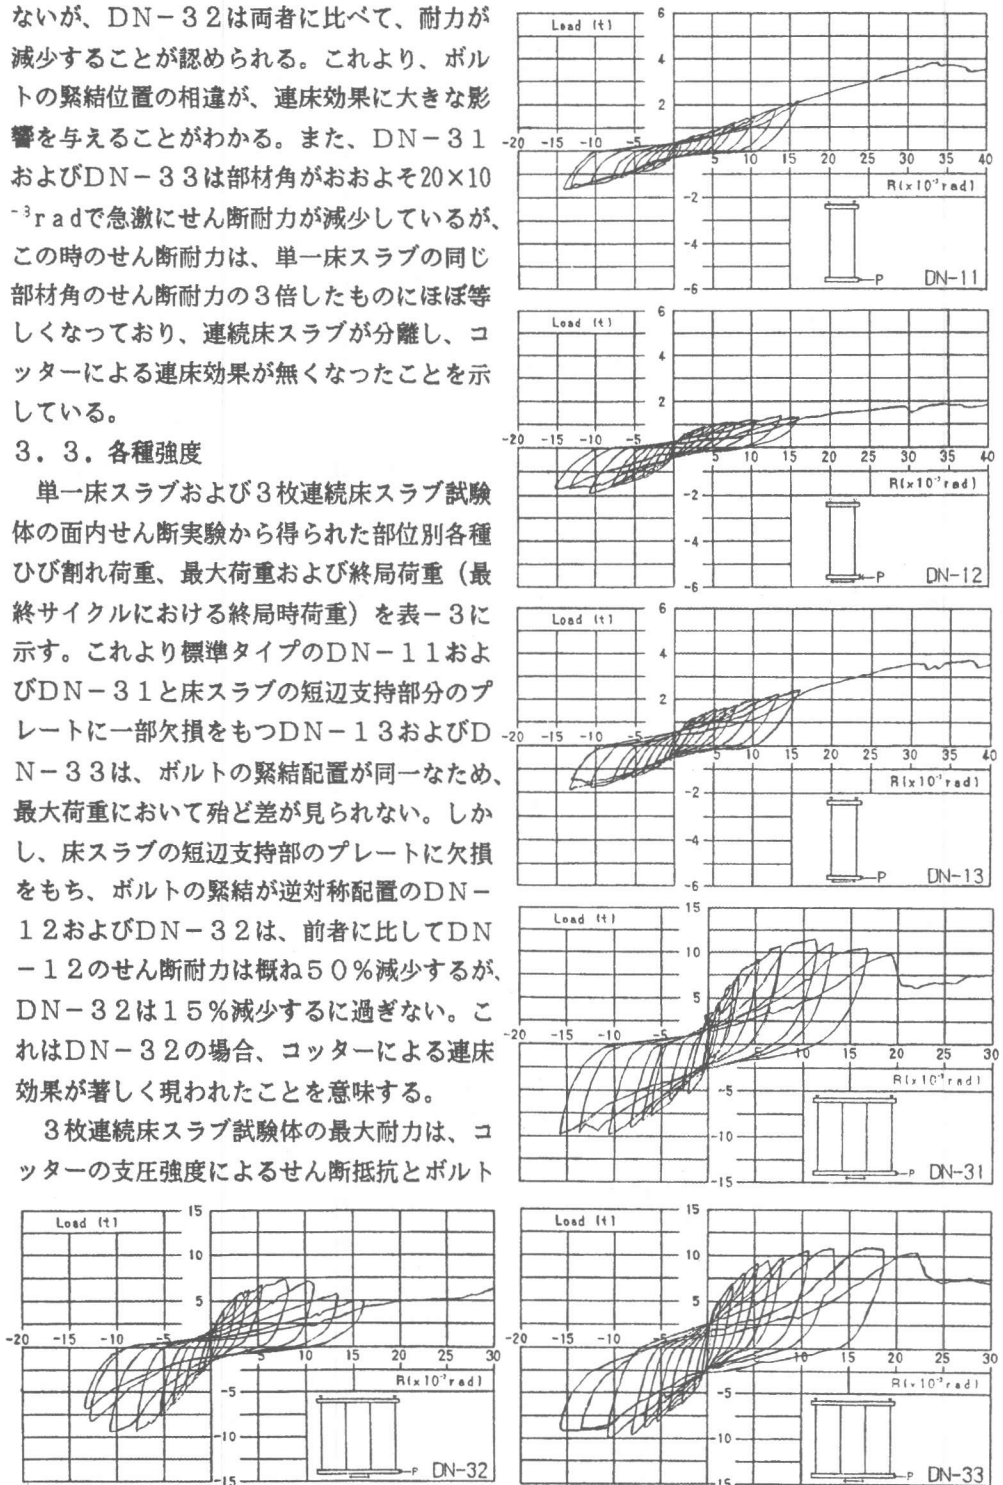 ないが、ＤＮ－３２は両者に比べて、耐力が
減少することが認められる。これより、ボル
トの緊結位置の相違が、連床効果に大きな影
響を与えることがわかる。また、ＤＮ－３１
およびＤＮ－３３は部材角がおおよそ20×10
⁻³ｒａｄで急激にせん断耐力が減少しているが、
この時のせん断耐力は、単一床スラブの同じ
部材角のせん断耐力の３倍したものにほぼ等
しくなっており、連続床スラブが分離し、コ
ッターによる連床効果が無くなったことを示
している。
３．３．各種強度
単一床スラブおよび３枚連続床スラブ試験
体の面内せん断実験から得られた部位別各種
ひび割れ荷重、最大荷重および終局荷重（最
終サイクルにおける終局時荷重）を表－３に
示す。これより標準タイプのＤＮ－１１およ
びＤＮ－３１と床スラブの短辺支持部分のプ
レートに一部欠損をもつＤＮ－１３およびＤ
Ｎ－３３は、ボルトの緊結配置が同一なため、
最大荷重において殆ど差が見られない。しか
し、床スラブの短辺支持部のプレートに欠損
をもち、ボルトの緊結が逆対称配置のＤＮ－
１２およびＤＮ－３２は、前者に比してＤＮ
－１２のせん断耐力は概ね５０％減少するが、
ＤＮ－３２は１５％減少するに過ぎない。こ
れはＤＮ－３２の場合、コッターによる連床
効果が著しく現われたことを意味する。
３枚連続床スラブ試験体の最大耐力は、コ
ッターの支圧強度によるせん断抵抗とボルト
Load (t)
6
4
2
-20 -15 -10 -5
5 10 15 20 25 30 35 40
R(x10⁻³rad)
-2
-4
-6
P
DN-11
Load (t)
6
4
2
-20 -15 -10 -5
5 10 15 20 25 30 35 40
R(x10⁻³rad)
-2
-4
-6
P
DN-12
Load (t)
6
4
2
-20 -15 -10 -5
5 10 15 20 25 30 35 40
R(x10⁻³rad)
-2
-4
-6
P
DN-13
Load (t)
15
10
5
-20 -15 -10 -5
5 10 15 20 25 30
R(x10⁻³rad)
-5
-10
-15
P
DN-31
Load (t)
15
10
5
-20 -15 -10 -5
5 10 15 20 25 30
R(x10⁻³rad)
-5
-10
-15
P
DN-32
Load (t)
15
10
5
-20 -15 -10 -5
5 10 15 20 25 30
R(x10⁻³rad)
-5
-10
-15
P
DN-33